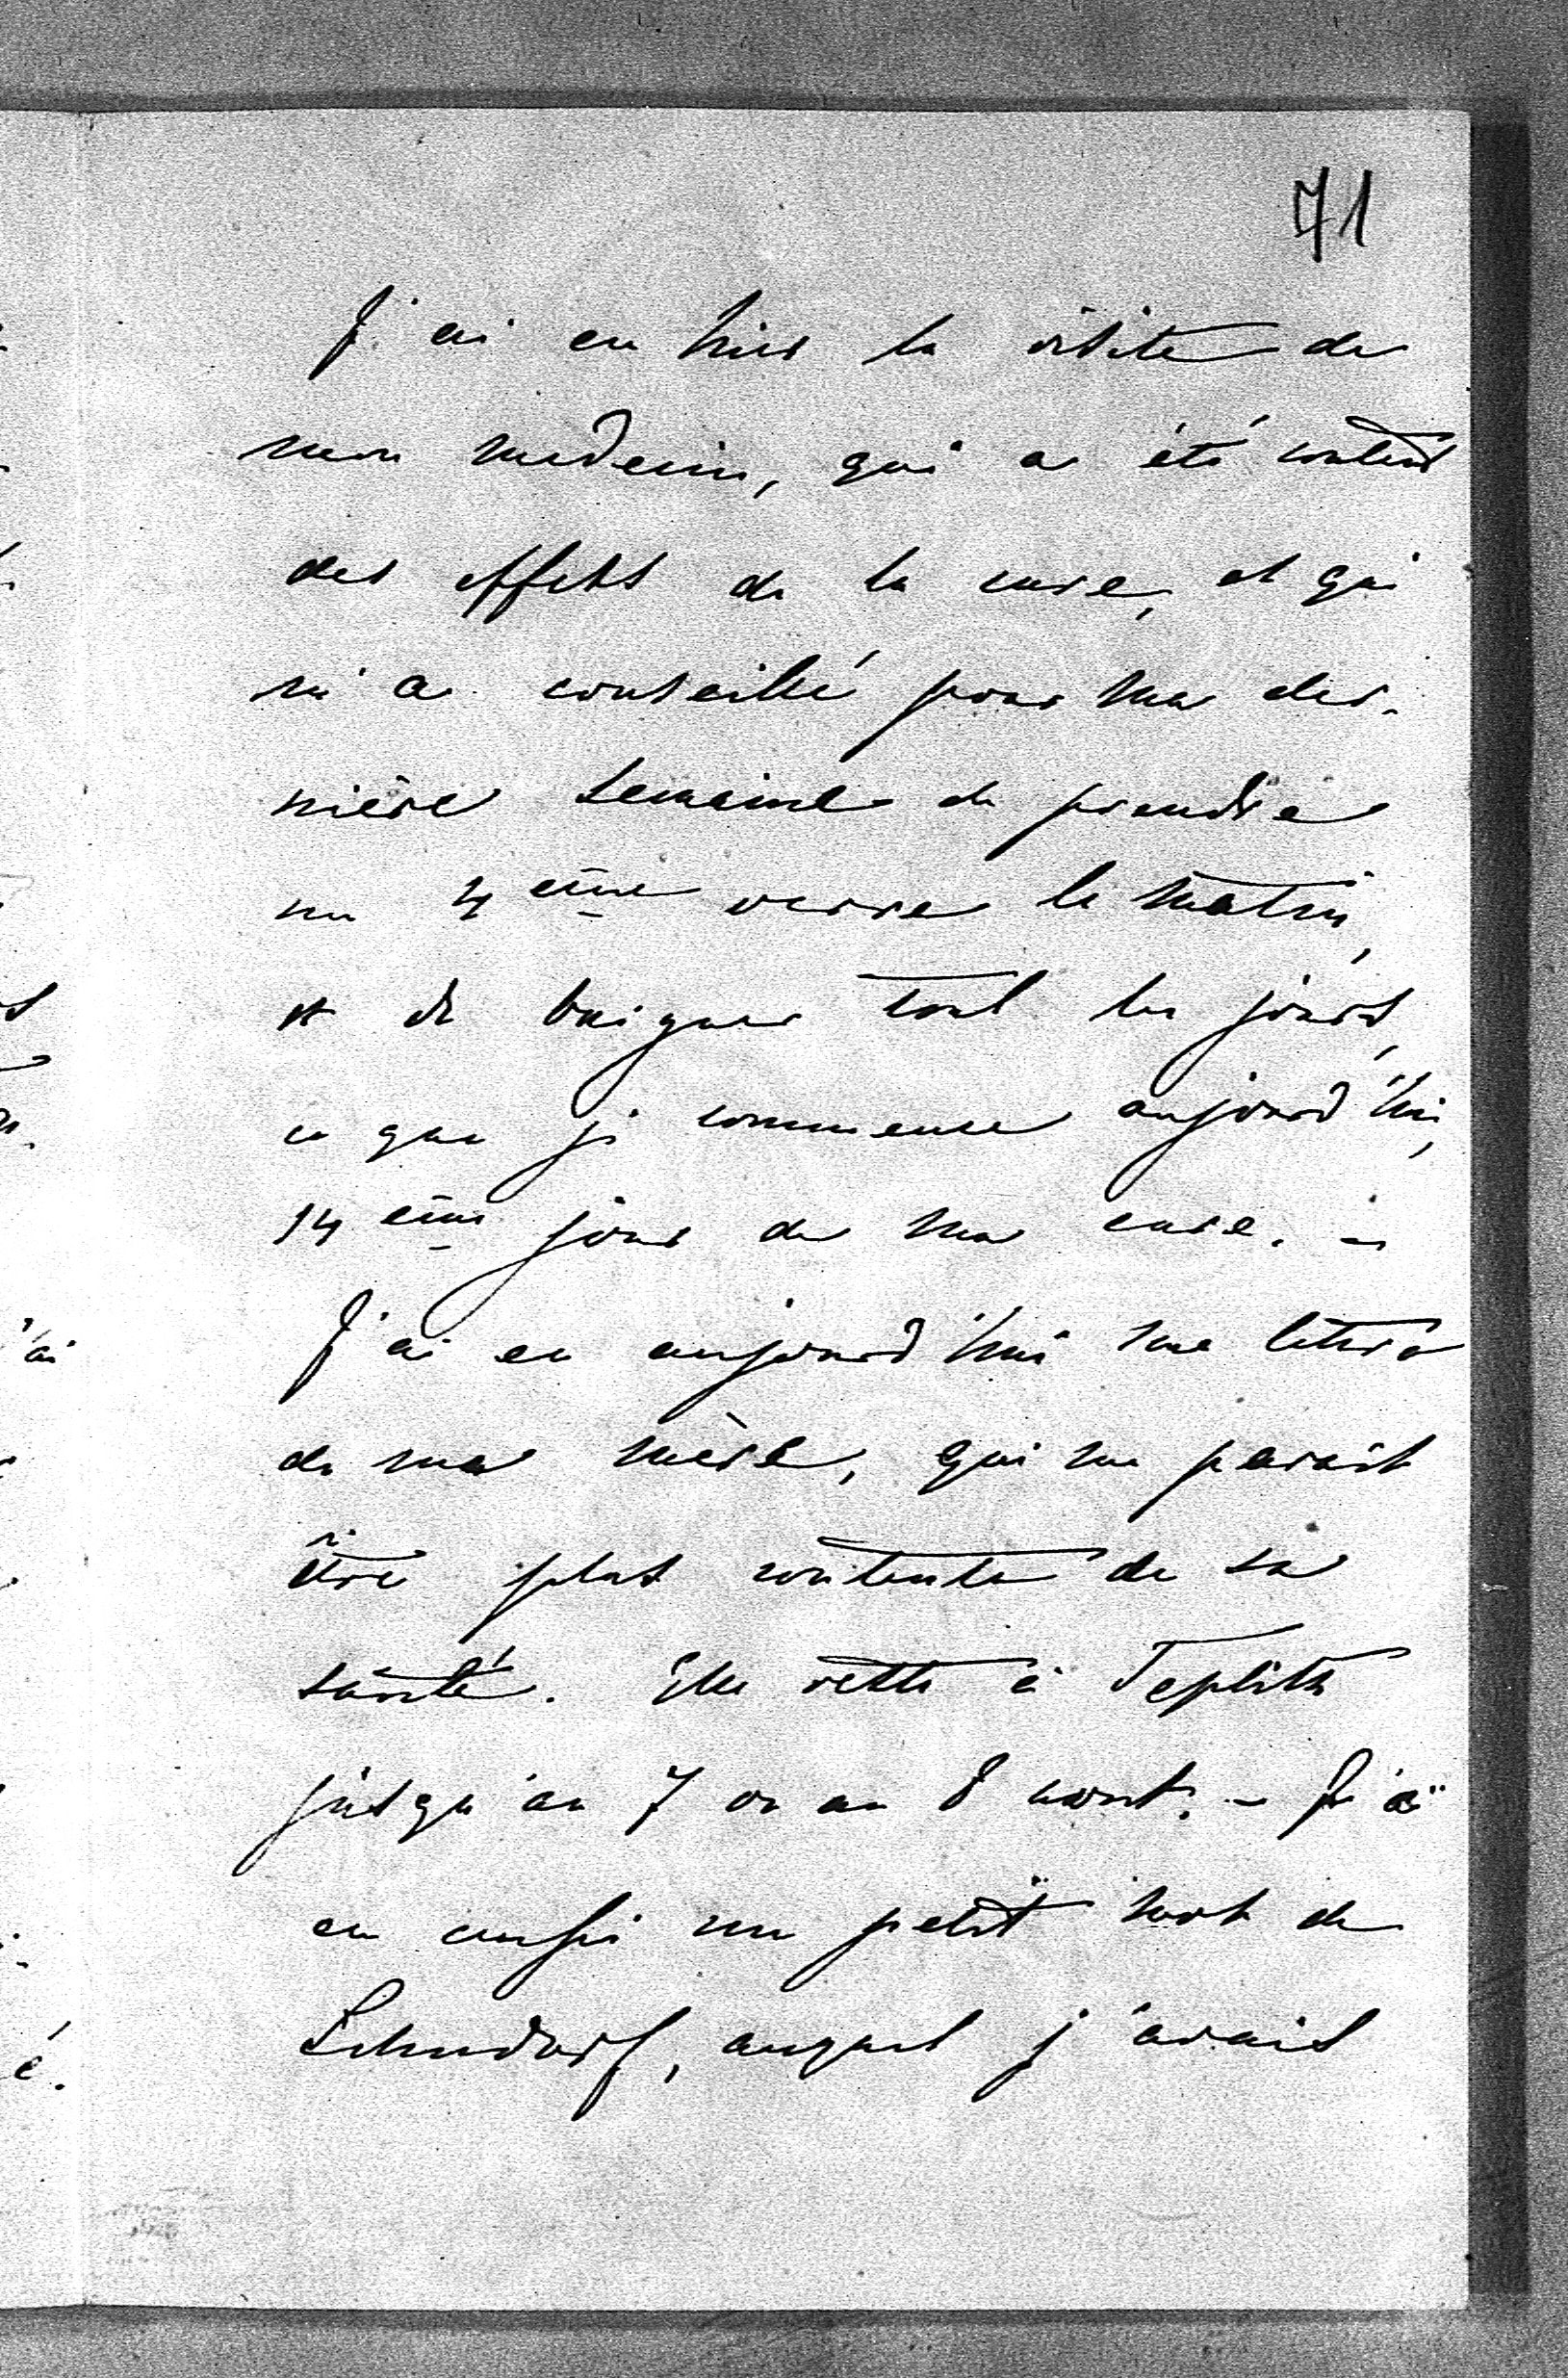 71
J'ai eu hier la visite de
mon médecin, qui a été content
des effets de la cure, et qui
m'a conseillé pour ma der-
nière semaine de prendre
un 4ème verre le matin,
et de baigner tout les jours,
ce que je commence aujourd'hui,
14ème jour de ma cure. -
J'ai eu aujourd'hui une lettre
de ma mère, qui me parait
être plus contente de sa
santé. Elle reste à Teplitz
jusqu'au 7 ou au 8 aout. - J'ai
eu aussi un petit mot de
Lehndorf, auquel j'avais